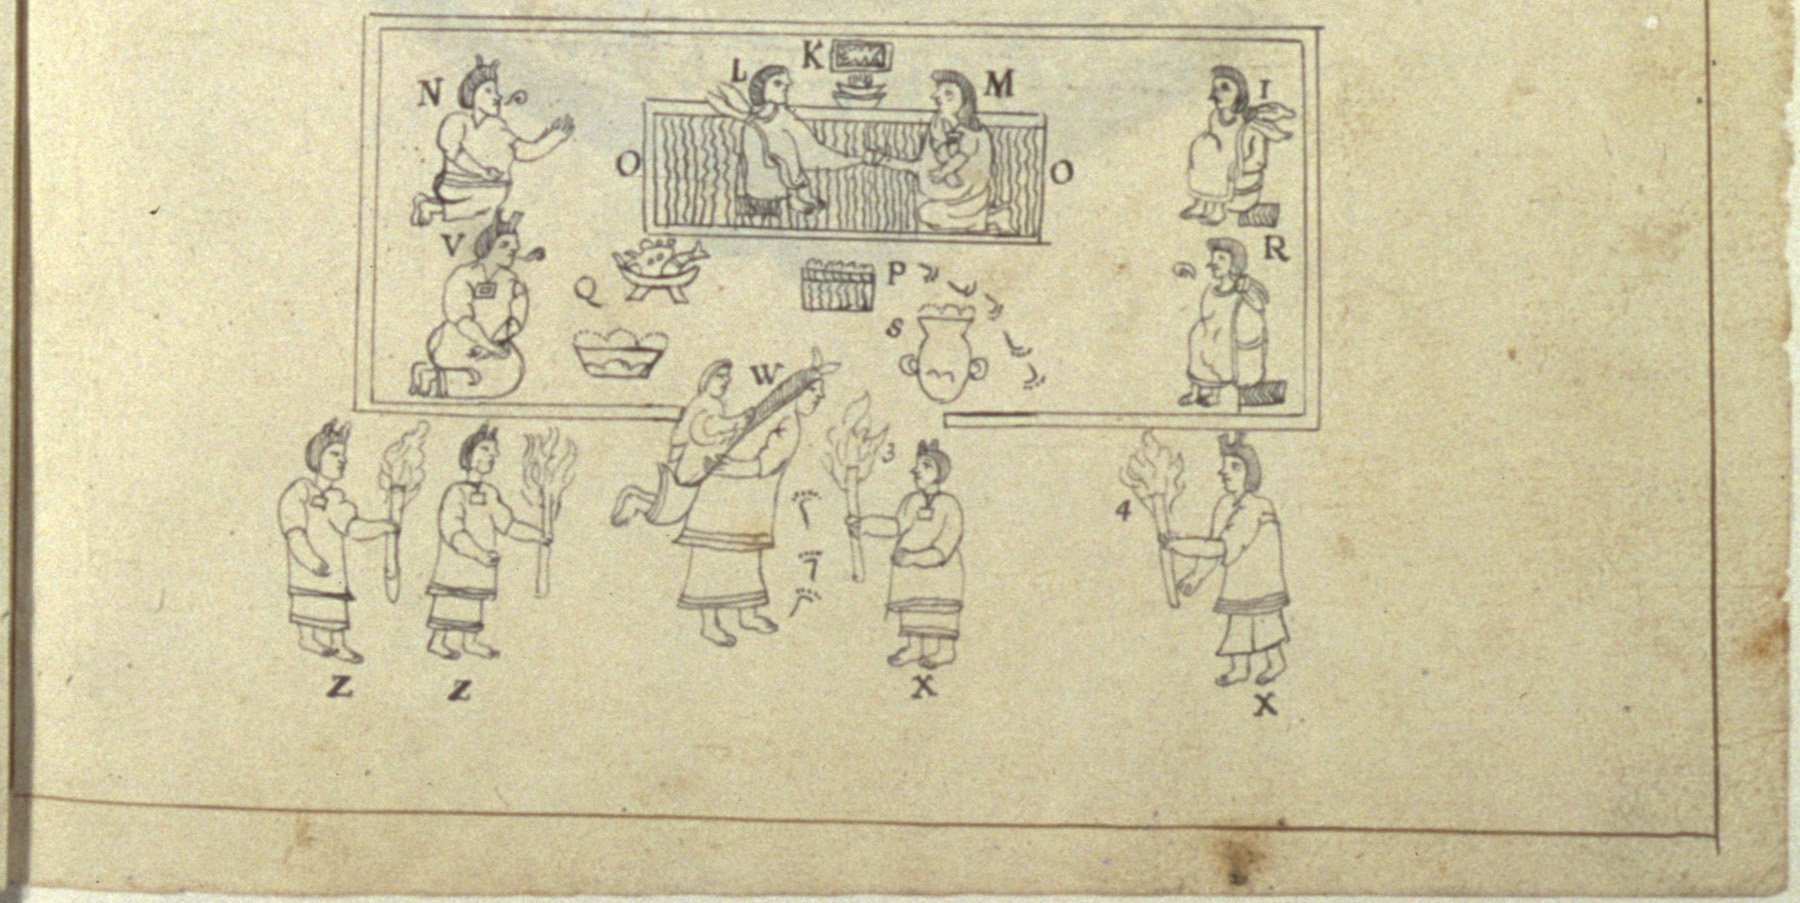 K
L M
N I
O O
V R
Q P
S
W
3
4
Z Z X X